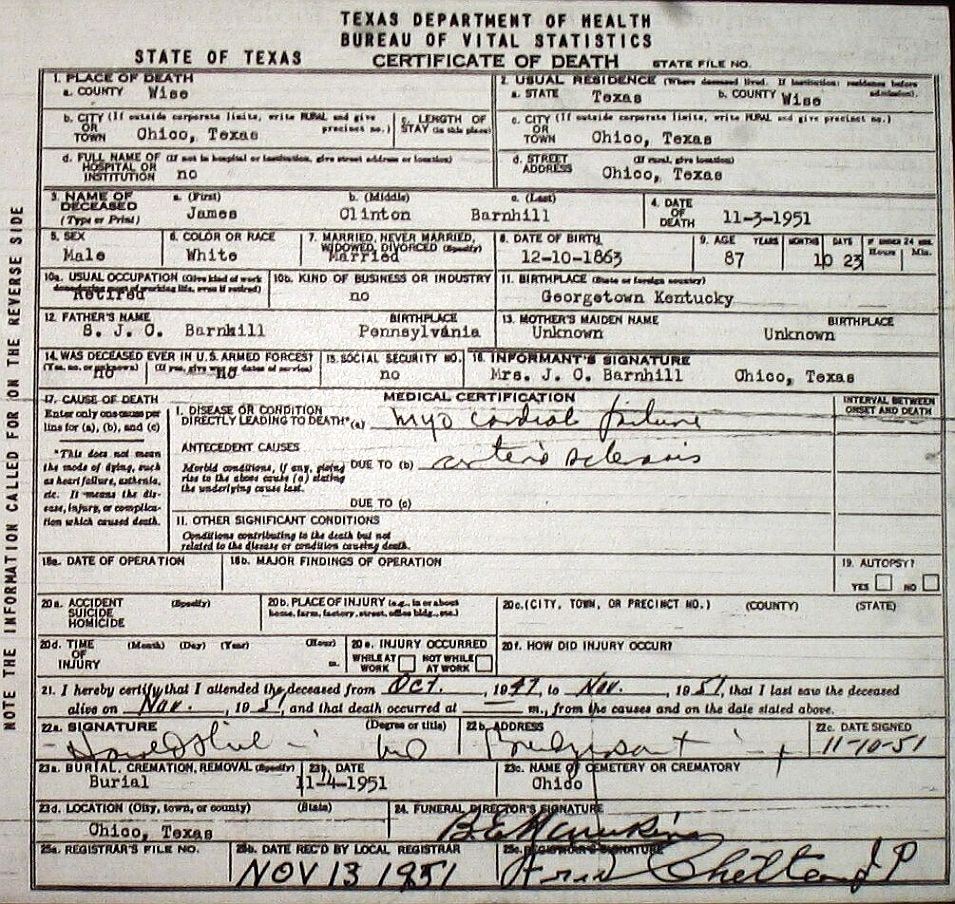 TEXAS DEPARTMENT OF HEALTH
BUREAU OF VITAL STATISTICS
STATE OF TEXAS CERTIFICATE OF DEATH STATE FILE NO.
NOTE THE INFORMATION CALLED FOR ON THE REVERSE SIDE
1. PLACE OF DEATH
a. COUNTY Wise
2. USUAL RESIDENCE (Where deceased lived. If institution: residence before admission).
a. STATE Texas b. COUNTY Wise
b. CITY (If outside corporate limits, write RURAL and give precinct no.)
OR
TOWN Chico, Texas
c. LENGTH OF
STAY (in this place)
c. CITY (If outside corporate limits, write RURAL and give precinct no.)
OR
TOWN Chico, Texas
d. FULL NAME OF (If not in hospital or institution, give street address or location)
HOSPITAL OR
INSTITUTION no
d. STREET (If rural, give location)
ADDRESS Chico, Texas
3. NAME OF DECEASED a. (First) b. (Middle) c. (Last)
(Type or Print) James Clinton Barnhill
4. DATE
OF
DEATH 11-3-1951
5. SEX
Male
6. COLOR OR RACE
White
7. MARRIED, NEVER MARRIED,
WIDOWED, DIVORCED (Specify)
Married
8. DATE OF BIRTH
12-10-1863
9. AGE YEARS MONTHS DAYS IF UNDER 24 HRS.
Hours Min.
87 10 23
10a. USUAL OCCUPATION (Give kind of work
done during most of working life, even if retired)
Retired
10b. KIND OF BUSINESS OR INDUSTRY
no
11. BIRTHPLACE (State or foreign country)
Georgetown Kentucky
12. FATHER'S NAME BIRTHPLACE
S. J. C. Barnhill Pennsylvania
13. MOTHER'S MAIDEN NAME BIRTHPLACE
Unknown Unknown
14. WAS DECEASED EVER IN U.S. ARMED FORCES?
(Yes, no, or unknown) (If yes, give war or dates of service)
no no
15. SOCIAL SECURITY NO.
no
16. INFORMANT'S SIGNATURE
Mrs. J. C. Barnhill Chico, Texas
17. CAUSE OF DEATH
Enter only one cause per
line for (a), (b), and (c)
*This does not mean
the mode of dying, such
as heart failure, asthenia,
etc. It means the dis-
ease, injury, or complica-
tion which caused death.
MEDICAL CERTIFICATION
INTERVAL BETWEEN
ONSET AND DEATH
I. DISEASE OR CONDITION
DIRECTLY LEADING TO DEATH*(a) myo cardial failure
ANTECEDENT CAUSES
Morbid conditions, if any, giving
rise to the above cause (a) stating
the underlying cause last.
DUE TO (b) arterio sclerosis
DUE TO (c)
II. OTHER SIGNIFICANT CONDITIONS
Conditions contributing to the death but not
related to the disease or condition causing death.
18a. DATE OF OPERATION
18b. MAJOR FINDINGS OF OPERATION
19. AUTOPSY?
YES NO
20a. ACCIDENT (Specify)
SUICIDE
HOMICIDE
20b. PLACE OF INJURY (e.g., in or about
home, farm, factory, street, office bldg., etc.)
20c. (CITY, TOWN, OR PRECINCT NO.) (COUNTY) (STATE)
20d. TIME (Month) (Day) (Year) (Hour)
OF
INJURY m.
20e. INJURY OCCURRED
WHILE AT WORK NOT WHILE AT WORK
20f. HOW DID INJURY OCCUR?
21. I hereby certify that I attended the deceased from Oct., 1947, to Nov., 1951, that I last saw the deceased
alive on Nov., 1951, and that death occurred at — m., from the causes and on the date stated above.
22a. SIGNATURE (Degree or title)
MD
22b. ADDRESS
Bridgeport
22c. DATE SIGNED
11-10-51
23a. BURIAL, CREMATION, REMOVAL (Specify)
Burial
23b. DATE
11-4-1951
23c. NAME OF CEMETERY OR CREMATORY
Chico
23d. LOCATION (City, town, or county) (State)
Chico, Texas
24. FUNERAL DIRECTOR'S SIGNATURE
B.E. Hawkins
25a. REGISTRAR'S FILE NO.
25b. DATE REC'D BY LOCAL REGISTRAR
NOV 13 1951
25c. REGISTRAR'S SIGNATURE
Fred Shelton J P